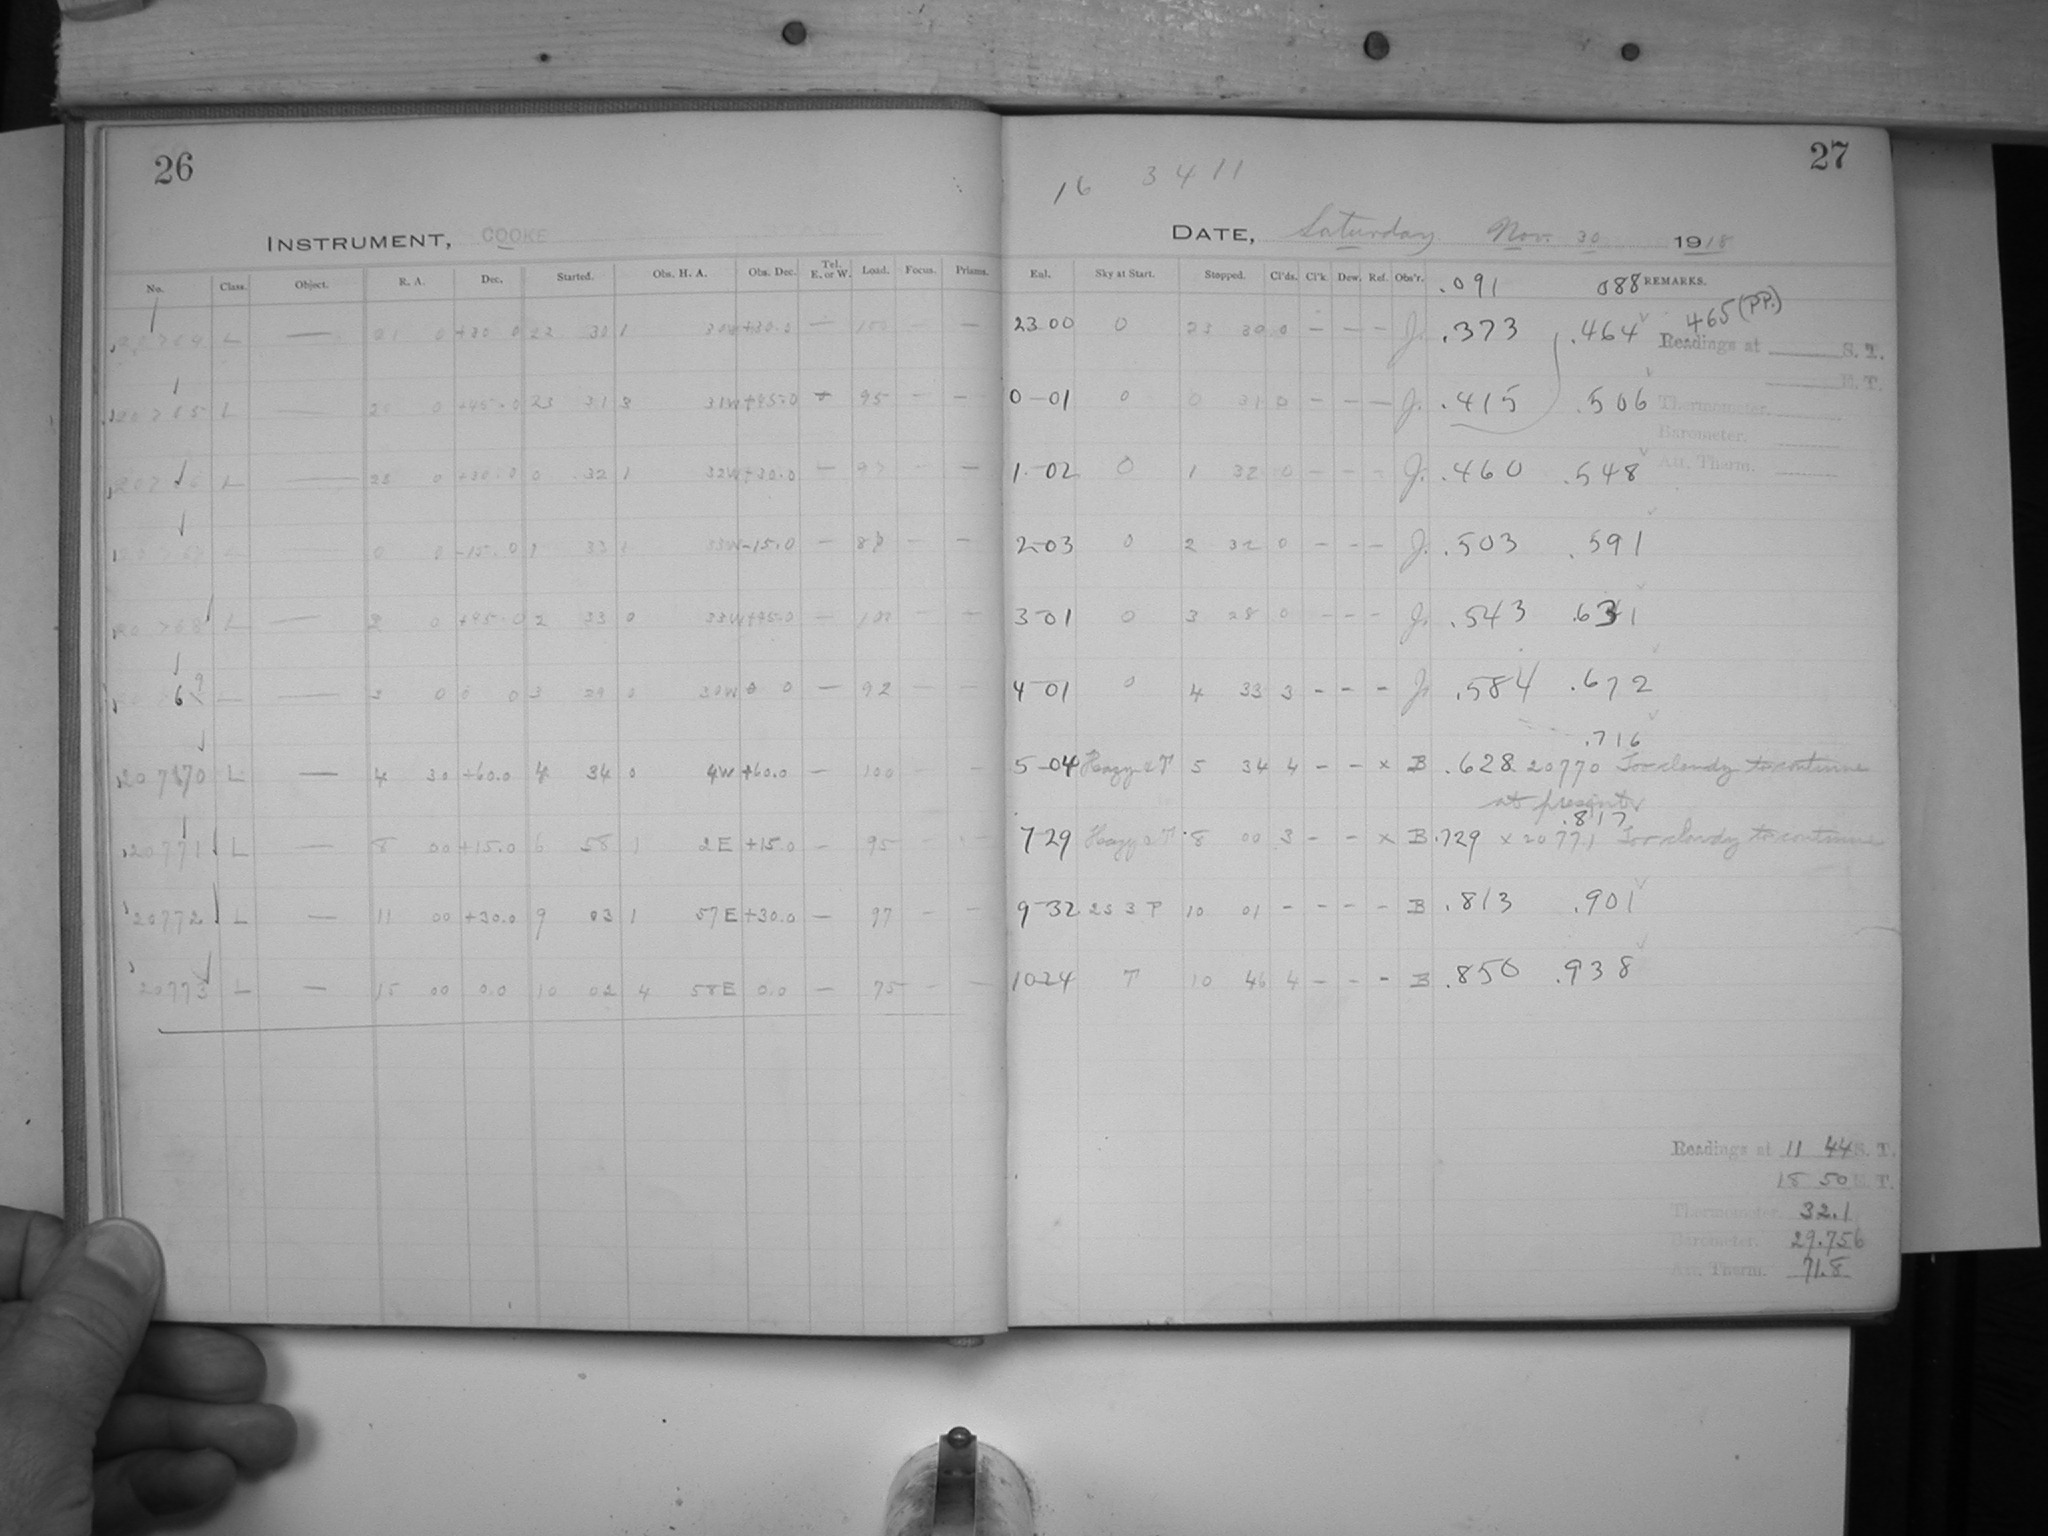 26
INSTRUMENT, COOKE
No. Class. Object. R. A. Dec. Started. Obs. H. A. Obs. Dec. Tel. E. or W. Load. Focus. Prisms.
L — 0 +30 0 22 30 1 30W +30.0 — 100 — —
20765 L 0 +45.0 23 31 3 31W +45.0 — 95 — —
L — 23 0 +30.0 0 32 1 32W +30.0 — —
L 0 0 -15.0 1 33 33W -15.0 — — —
20768 L — 2 0 +45.0 2 33 0 33W +45.0 — — —
— 3 0 0 0 3 39 0 39W 0 0 — 92 — —
20770 L — 4 30 +60.0 4 34 0 4W +60.0 — 100 — —
20771 L — 8 00 +15.0 6 58 1 2E +15.0 — 95 — —
20772 L — 11 00 +30.0 9 03 1 57E +30.0 — 97 — —
20773 L — 15 00 0.0 10 02 4 58E 0.0 — 75 — —
27
16 3411
DATE, Saturday Nov. 30 1918
Eql. Sky at Start. Stopped. Cl'ds. Cl'k. Dew. Ref. Obs'r. .091 088 REMARKS.
465 (PP.)
23 00 0 23 30 0 — — — J. .373 .464
Readings at S. T.
E. T.
0-01 0 0 31 0 — — — J. .415 .506
Thermometer.
Barometer.
Att. Therm.
1-02 0 1 32 0 - - - J. .460 .548
2-03 0 2 32 0 - - - J. .503 .591
3-01 0 3 28 0 - - - J. .543 .631
4-01 0 4 33 3 - - - J. .584 .672
.716
5-04 Hazy 2T 5 34 4 - - x B .628 20770 Too cloudy to continue
at present
.817
7-29 Hazy 2T 8 00 3 - - x B .729 x 20771 Too cloudy to continue
9-32 2S 3 P 10 01 - - - - B .813 .901
10-24 T 10 46 4 - - - B .850 .938
Readings at 11 44 S. T.
18 50 E. T.
Thermometer. 32.1
Barometer. 29.756
Att. Therm. 71.8